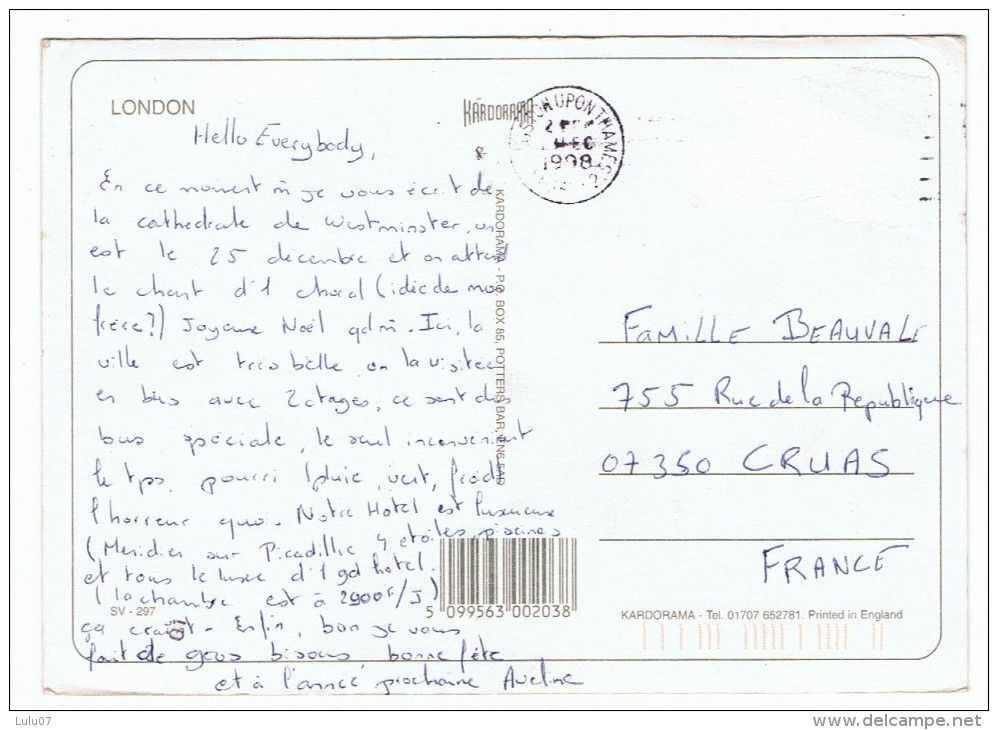 LONDON
KARDORAMA
UPON THAMES
DEC
1998
Hello Everybody,
En ce moment m je vous écrit de
la cathedrale de Westminster, on
est le 25 decembre et on attend
le chant d'1 choral (idée de mon
frère?) Joyeux Noël qd m. Ici, la
ville est très belle on la visitee
en bus avec 2 étages, ce sont des
bus spéciale, le seul inconvenient
le tps pourri (pluie, vent, froid
l'horreur quoi. Notre Hotel est luxueux
(Meridien sur Picadillie 4 etoiles, piscines
et tous le luxe d'1 gd hotel.
(la chambre est à 2900F/J)
ça craint - Enfin, bon je vous
fait de gros bisous, bonne fête
et à l'année prochaine Aveline
KARDORAMA - P.O. BOX 85, POTTERS BAR, EN6 5AD
FAMILLE BEAUVALE
755 Rue de la Republique
07350 CRUAS
FRANCE
SV - 297
5 099563 002038
KARDORAMA - Tel. 01707 652781. Printed in England
Lulu07
delcampe.net